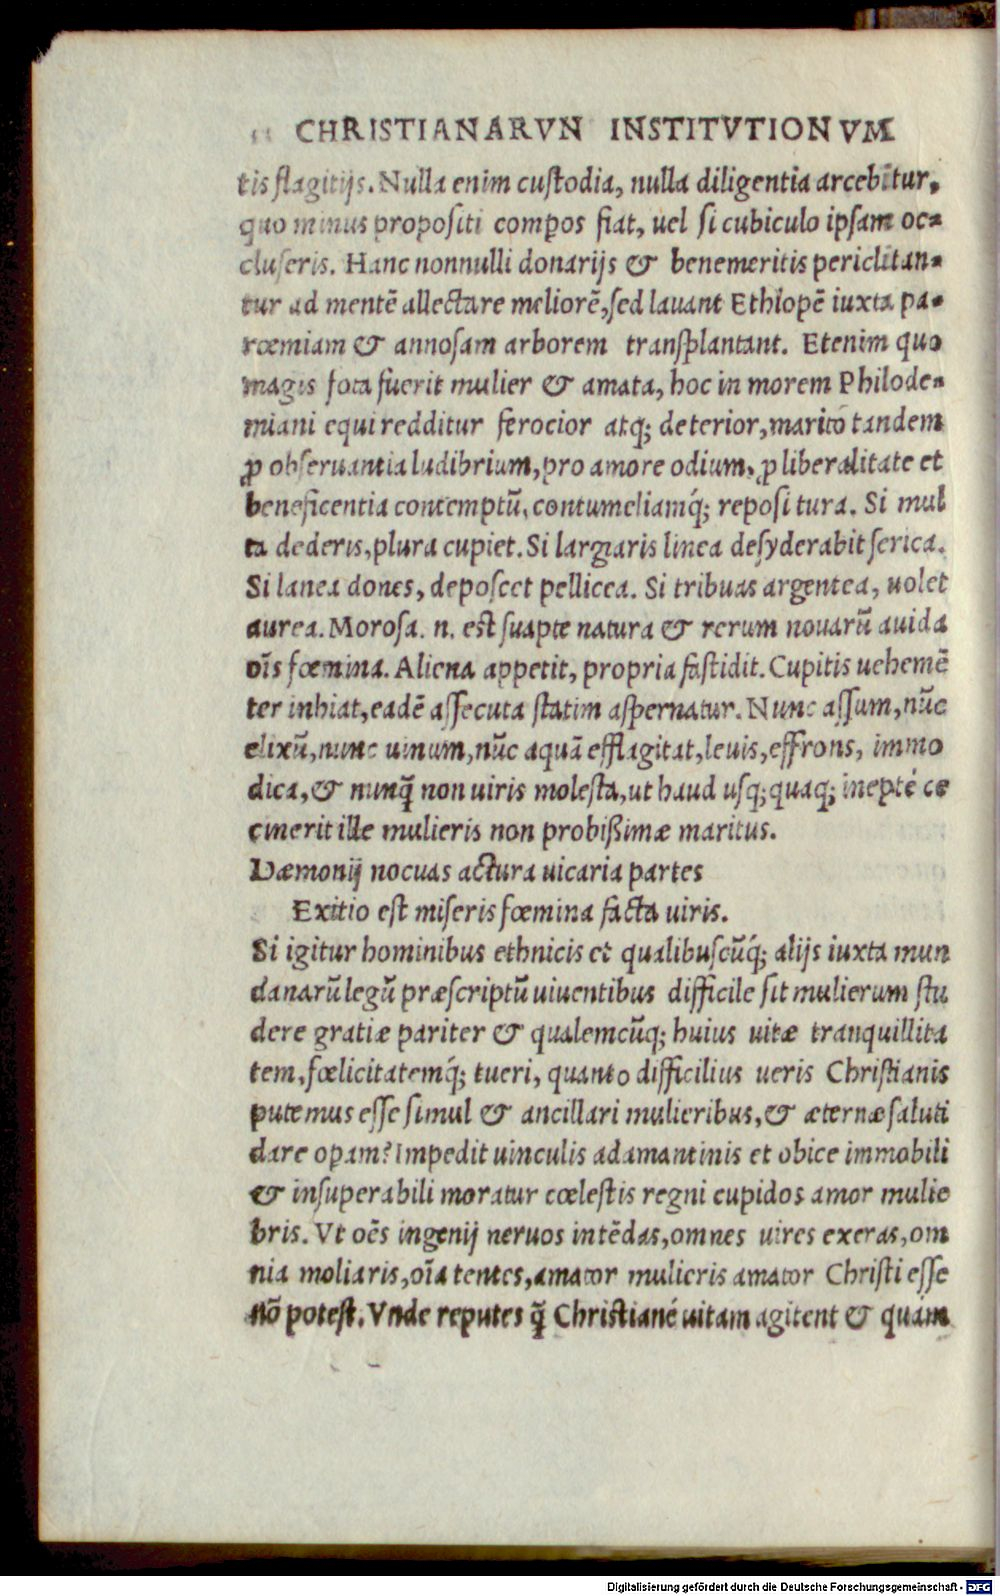 CHRISTIANARVN INSTITVTIONVM
tis flagitijs. Nulla enim custodia, nulla diligentia arcebitur,
quo minus propositi compos fiat, uel si cubiculo ipsam oc-
cluseris. Hanc nonnulli donarijs & benemeritis periclitan-
tur ad mentē allectare meliorē, sed lauant Ethiopē iuxta pa-
rœmiam & annosam arborem transplantant. Etenim quo
magis fota fuerit mulier & amata, hoc in morem Philode-
miani equi redditur ferocior atq; deterior, marito tandem
ꝓ obseruantia ludibrium, pro amore odium, ꝓ liberalitate et
beneficentia contemptū, contumeliamq́; repositura. Si mul
ta dederis, plura cupiet. Si largiaris linea desyderabit serica.
Si lanea dones, deposcet pellicea. Si tribuas argentea, uolet
aurea. Morosa. n. est suapte natura & rerum nouarū auida
oīs fœmina. Aliena appetit, propria fastidit. Cupitis uehemē
ter inhiat, eadē assecuta statim aspernatur. Nunc assum, nūc
elixū, nunc uinum, nūc aquā efflagitat, leuis, effrons, immo
dica, & nunq̃ non uiris molesta, ut haud usq; quaq; ineptè ce
cinerit ille mulieris non probißimæ maritus.
Dæmonij nocuas actura uicaria partes
Exitio est miseris fœmina facta uiris.
Si igitur hominibus ethnicis et qualibuscūq́; alijs iuxta mun
danarū legū præscriptū uiuentibus difficile sit mulierum stu
dere gratiæ pariter & qualemcūq; huius uitæ tranquillita
tem, fœlicitatemq́; tueri, quanto difficilius ueris Christianis
putemus esse simul & ancillari mulieribus, & æternæ saluti
dare opam? Impedit uinculis adamantinis et obice immobili
& insuperabili moratur cœlestis regni cupidos amor mulie
bris. Vt oēs ingenij neruos intēdas, omnes uires exeras, om
nia moliaris, oīa tentes, amator mulieris amator Christi esse
nō potest. Vnde reputes q̃ Christianè uitam agitent & quàm
Digitalisierung gefördert durch die Deutsche Forschungsgemeinschaft - DFG